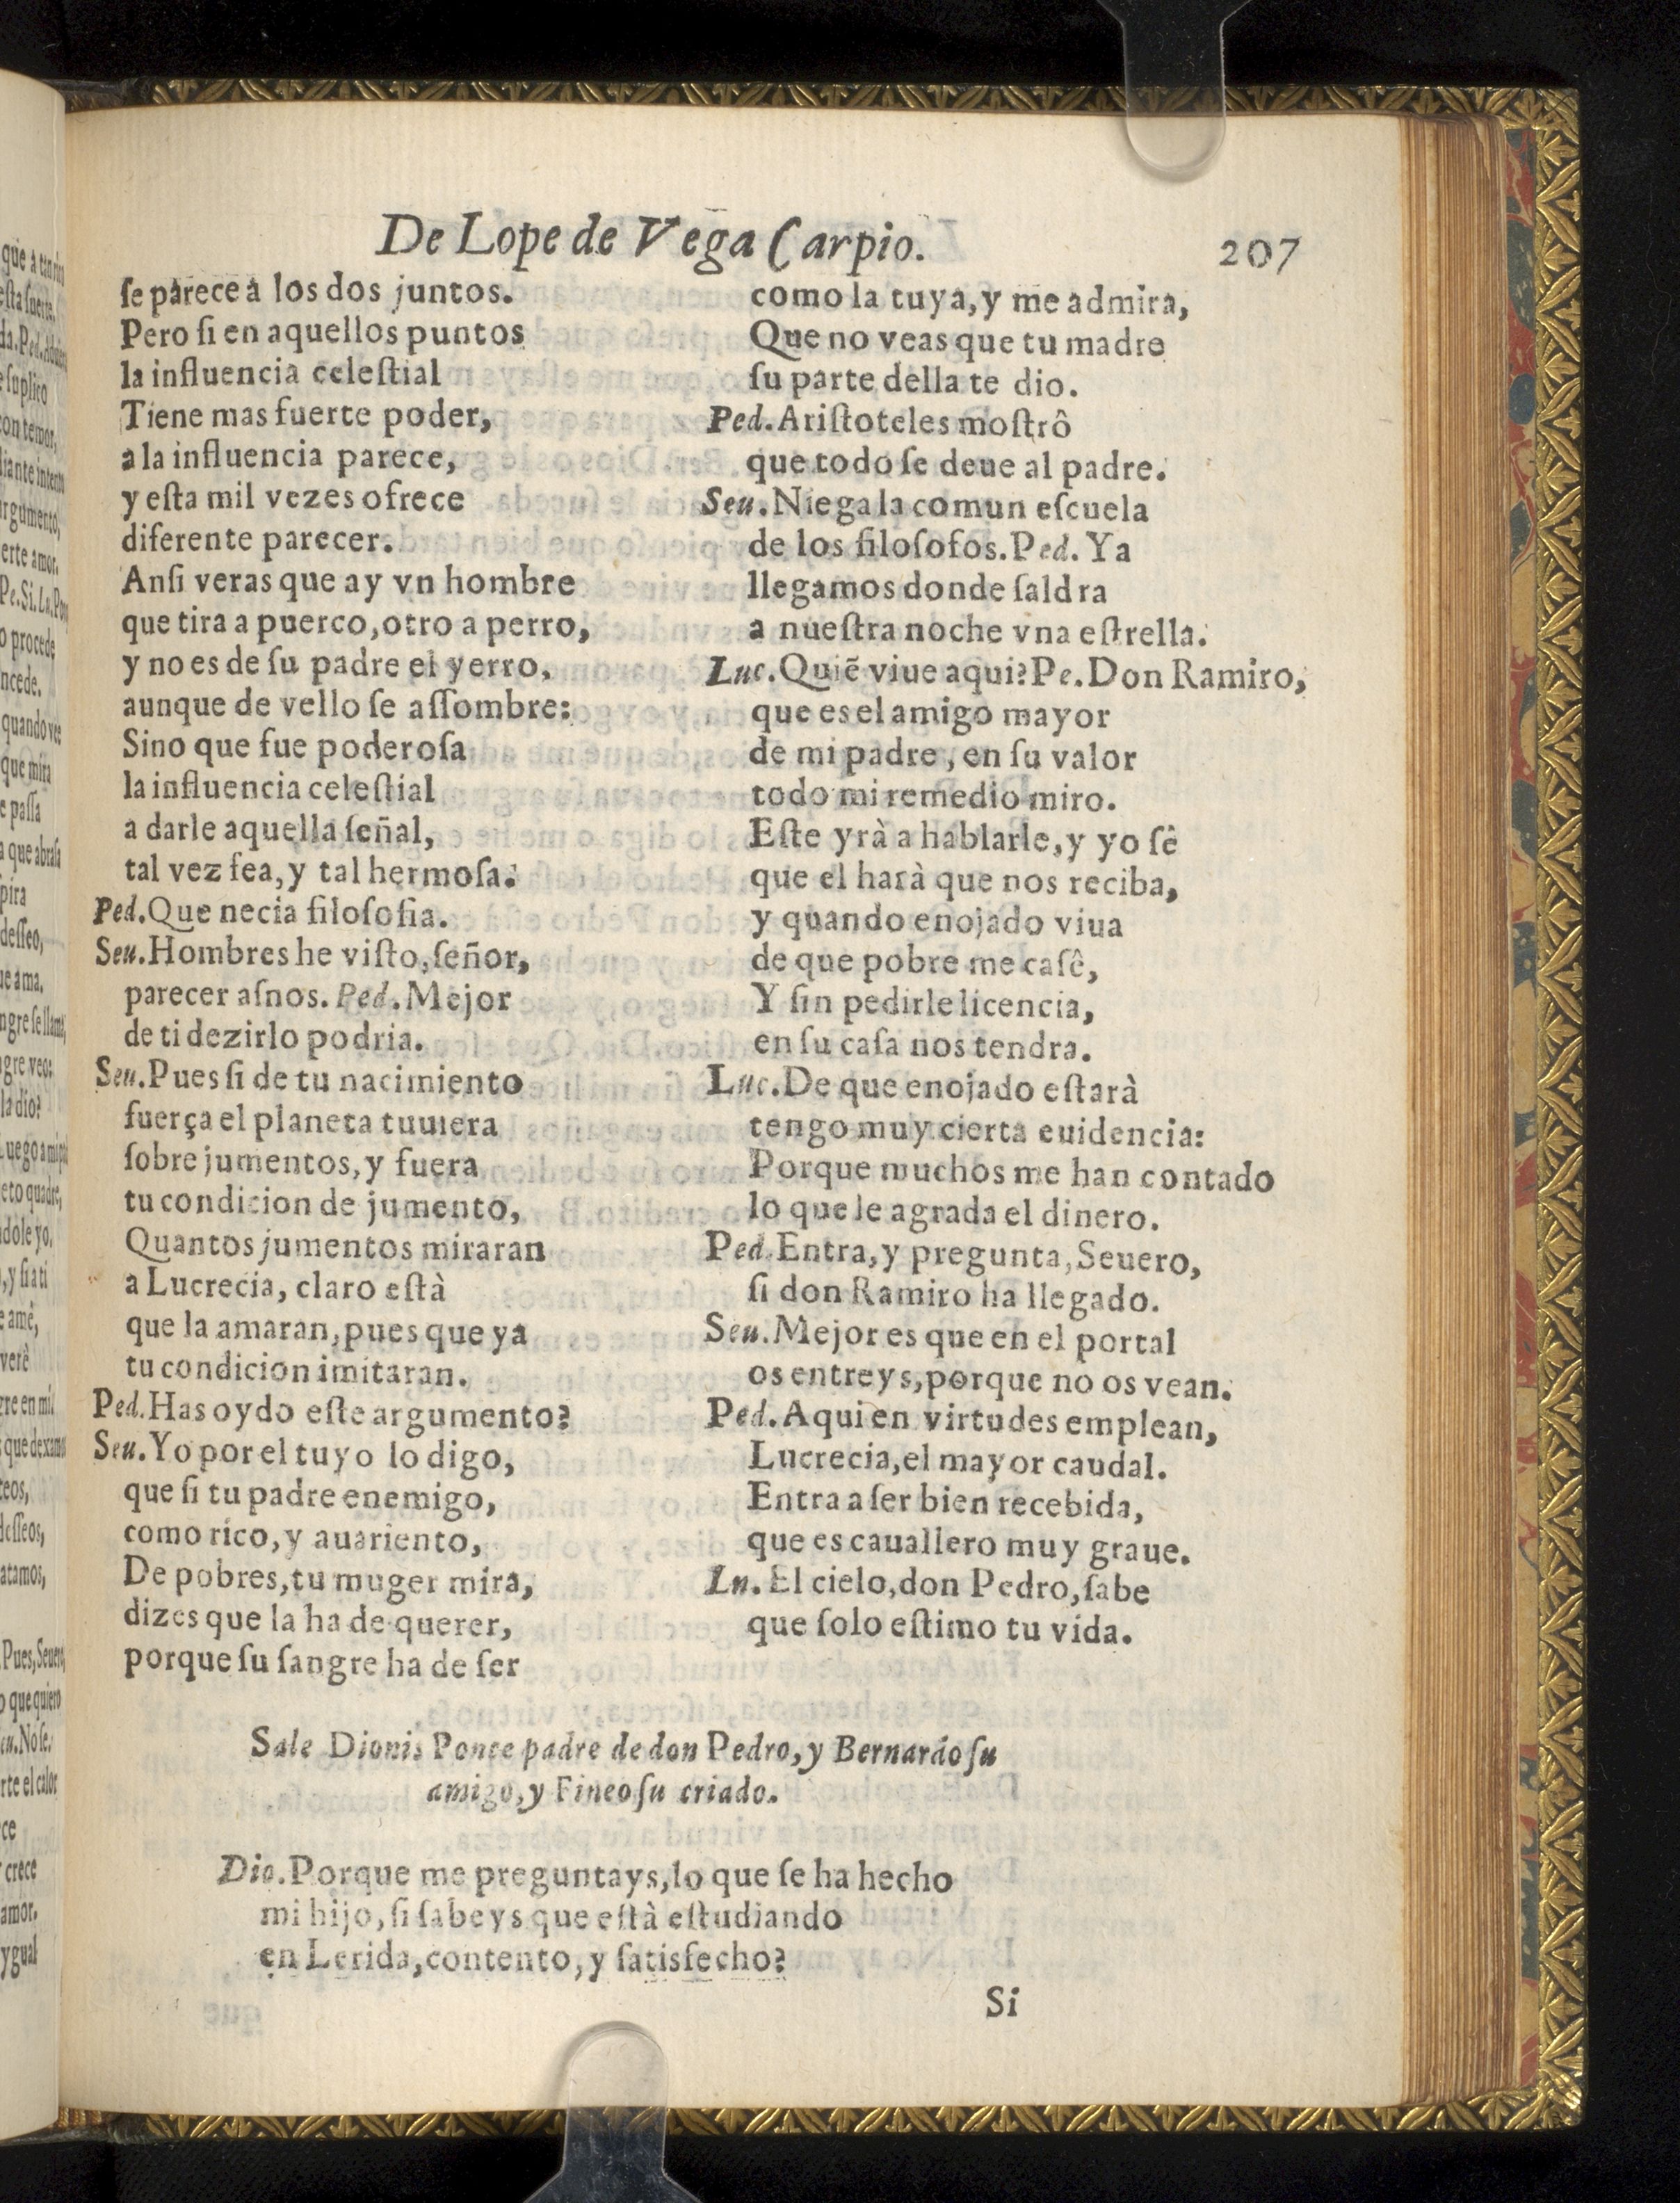 De Lope de Vega Carpio. 207
ſe parece à los dos juntos.
Pero ſi en aquellos puntos
la influencia celeſtial
Tiene mas fuerte poder,
a la influencia parece,
y eſta mil vezes ofrece
diferente parecer.
Anſi veras que ay vn hombre
que tira a puerco, otro a perro,
y no es de ſu padre el yerro,
aunque de vello ſe aſſombre:
Sino que fue poderoſa
la influencia celeſtial
a darle aquella ſeñal,
tal vez fea, y tal hermoſa.
Ped. Que necia filoſofia.
Seu. Hombres he viſto, ſeñor,
parecer aſnos. Ped. Mejor
de ti dezirlo podria.
Seu. Pues ſi de tu nacimiento
fuerça el planeta tuuiera
ſobre jumentos, y fuera
tu condicion de jumento,
Quantos jumentos miraran
a Lucrecia, claro eſtà
que la amaran, pues que ya
tu condicion imitaran.
Ped. Has oydo eſte argumento?
Seu. Yo por el tuyo lo digo,
que ſi tu padre enemigo,
como rico, y auariento,
De pobres, tu muger mira,
dizes que la ha de querer,
porque ſu ſangre ha de ſer
como la tuya, y me admira,
Que no veas que tu madre
ſu parte della te dio.
Ped. Ariſtoteles moſtrô
que todo ſe deue al padre.
Seu. Niega la comun eſcuela
de los filoſofos. Ped. Ya
llegamos donde ſaldra
a nueſtra noche vna eſtrella.
Luc. Quiẽ viue aqui? Pe. Don Ramiro,
que es el amigo mayor
de mi padre, en ſu valor
todo mi remedio miro.
Eſte yrà a hablarle, y yo ſê
que el harà que nos reciba,
y quando enojado viua
de que pobre me caſê,
Y ſin pedirle licencia,
en ſu caſa nos tendra.
Luc. De que enojado eſtarà
tengo muy cierta euidencia:
Porque muchos me han contado
lo que le agrada el dinero.
Ped. Entra, y pregunta, Seuero,
ſi don Ramiro ha llegado.
Seu. Mejor es que en el portal
os entreys, porque no os vean.
Ped. Aqui en virtudes emplean,
Lucrecia, el mayor caudal.
Entra a ſer bien recebida,
que es cauallero muy graue.
Lu. El cielo, don Pedro, ſabe
que ſolo eſtimo tu vida.
Sale Dionis Ponce padre de don Pedro, y Bernardo ſu
amigo, y Fineo ſu criado.
Dio. Porque me preguntays, lo que ſe ha hecho
mi hijo, ſi ſabeys que eſtà eſtudiando
en Lerida, contento, y ſatisfecho?
Si